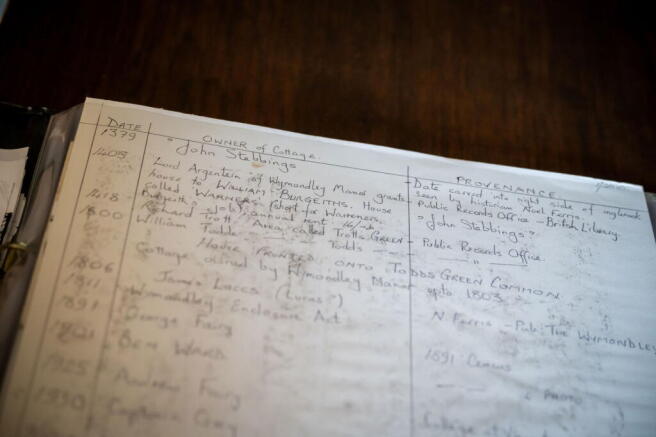 DATE OWNER of Cottage. PROVENANCE
1379 "John Stebbings Date carved into right side of inglenook
seen by historian Noel Farris.
1408 Lord Argentein of Wymondley Manor grants Public Records Office - British Library.
house to WILLIAM BURGEITHS. House "John Stebbings"
called WARNERS short for Warreners.
1418 annual rent
1600 Richard Trott Area called Trotts GREEN - Public Records Office.
William Todds — Todds — — " —
HOUSE FRONTED ONTO TODDS GREEN COMMON
Cottage owned by Wymondley Manor upto 1803
1806 James Lucas (Lucas") N Farris - Pub: The WYMONDLEY
1811 Wymondley Enclosure Act
1891 George Fairy 1891 Census
BEN WARD
1925 Andrew Fairy PHOTO
1930 Captain Gray